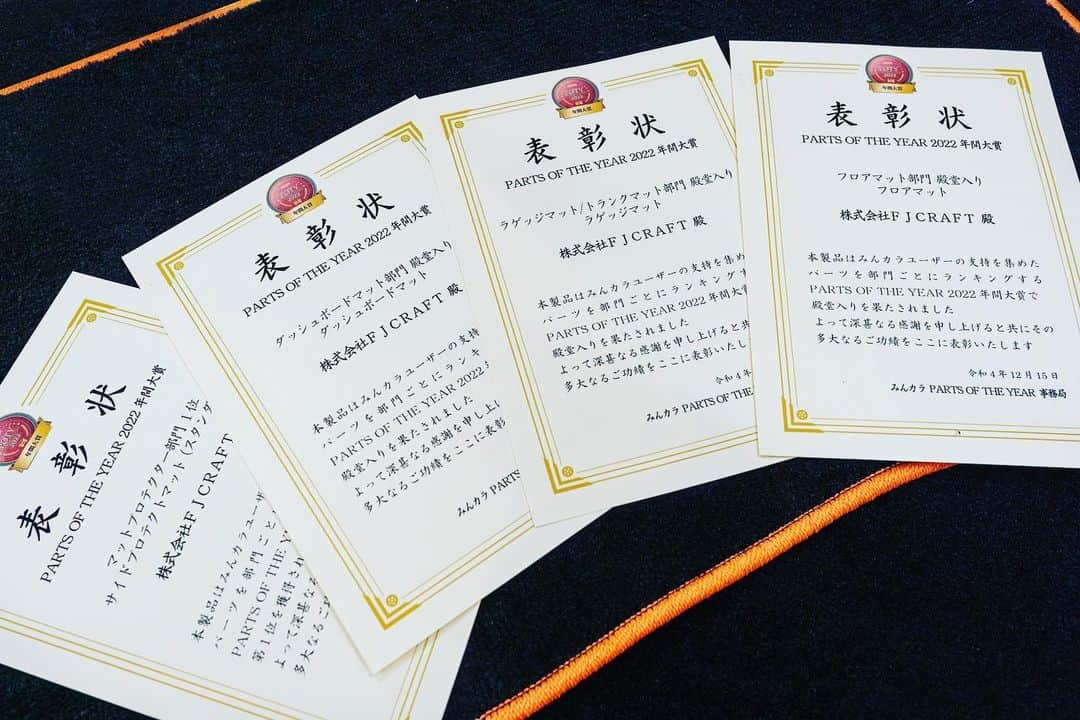 表彰状
PARTS OF THE YEAR 2022 年間大賞
マットプロテクター部門 1位
サイドプロテクトマット (スタンダ
株式会社FJCRAFT
本製品はみんカラユーザー
パーツを部門ごと
PARTS OF THE YEA
第1位を獲得され
よって深甚な
多大なるご
年間大賞
表彰状
PARTS OF THE YEAR 2022 年間大賞
ダッシュボードマット部門 殿堂入り
ダッシュボードマット
株式会社FJCRAFT 殿
本製品はみんカラユーザーの支持
パーツを部門ごとにランキ
PARTS OF THE YEAR 2022
殿堂入りを果たされました
よって深甚なる感謝を申し上
多大なるご功績をここに表彰
みんカラ PARTS
年間大賞
表彰状
PARTS OF THE YEAR 2022 年間大賞
ラゲッジマット/トランクマット部門 殿堂入り
ラゲッジマット
株式会社FJCRAFT 殿
本製品はみんカラユーザーの支持を集め
パーツを部門ごとにランキングす
PARTS OF THE YEAR 2022 年間大賞
殿堂入りを果たされました
よって深甚なる感謝を申し上げると共に
多大なるご功績をここに表彰いたしま
令和4
みんカラ PARTS OF THE
年間大賞
表彰状
PARTS OF THE YEAR 2022 年間大賞
フロアマット部門 殿堂入り
フロアマット
株式会社FJCRAFT 殿
本製品はみんカラユーザーの支持を集めた
パーツを部門ごとにランキングする
PARTS OF THE YEAR 2022 年間大賞で
殿堂入りを果たされました
よって深甚なる感謝を申し上げると共にその
多大なるご功績をここに表彰いたします
令和4年12月15日
みんカラ PARTS OF THE YEAR 事務局